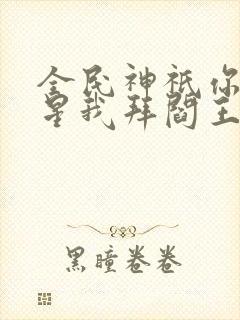 全民神祇你
星我拜阎王
黑瞳卷卷